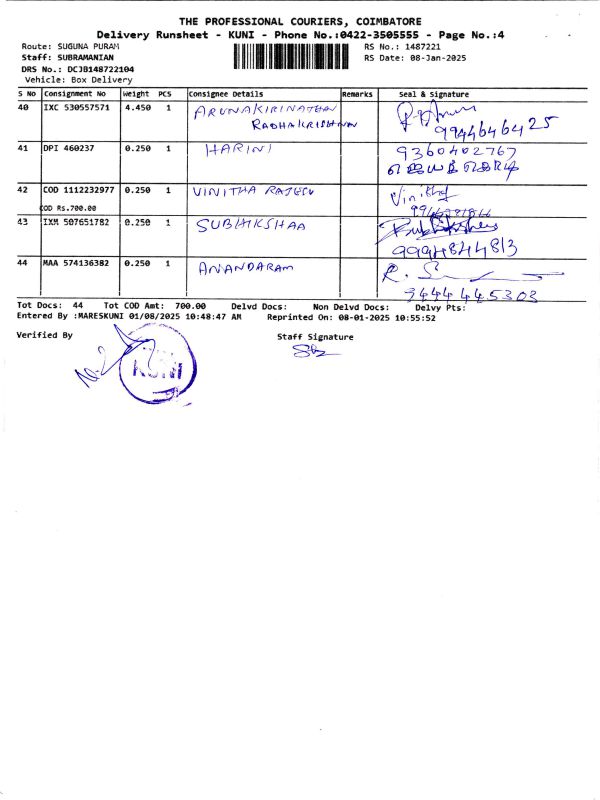 THE PROFESSIONAL COURIERS, COIMBATORE
Delivery Runsheet - KUNI - Phone No.:0422-3505555 - Page No.:4
Route: SUGUNA PURAM RS No.: 1487221
Staff: SUBRAMANIAN RS Date: 08-Jan-2025
DRS No.: DCJB148722104
Vehicle: Box Delivery
S No Consignment No Weight PCS Consignee Details Remarks Seal & Signature
40 IXC 530557571 4.450 1 ARUNAKIRINATHAN
RADHAKRISHNAN
9944646425
41 DPI 460237 0.250 1 HARINI 9360402767
42 COD 1112232977 0.250 1 VINITHA RAJESH Vinitha
COD Rs.700.00
43 IXM 507651782 0.250 1 SUBHIKSHAA
9994844813
44 MAA 574136382 0.250 1 ANANDARAM
9444445303
Tot Docs: 44 Tot COD Amt: 700.00 Delvd Docs: Non Delvd Docs: Delvy Pts:
Entered By :MARESKUNI 01/08/2025 10:48:47 AM Reprinted On: 08-01-2025 10:55:52
Verified By Staff Signature
KUNI